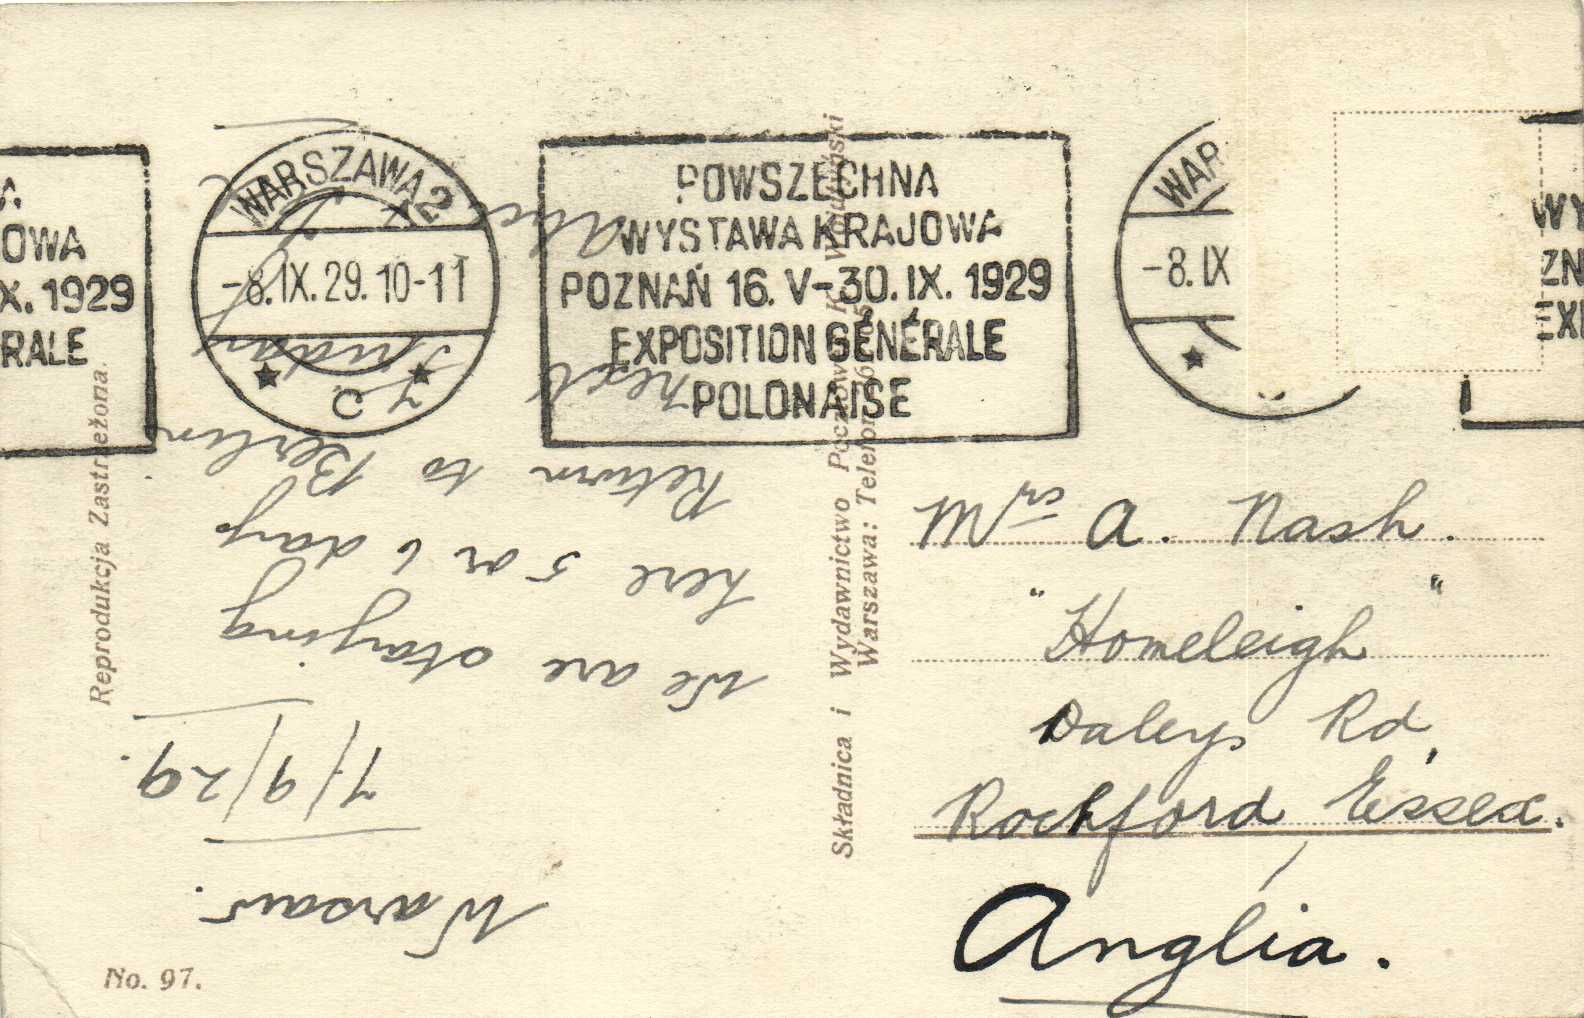 WARSZAWA 2
-8.IX.29.10-11
c
POWSZECHNA
WYSTAWA KRAJOWA
POZNAŃ 16. V-30. IX. 1929
EXPOSITION GÉNÉRALE
POLONAISE
OWA
X. 1929
RALE
WAR
-8.IX
WY
ZN
EX
Warsaw.
7/9/29.
We are staying
here 5 or 6 days.
Return to Berlin
next Friday
Mrs A. Nash.
"Homeleigh"
Daleys Rd,
Rochford Essex.
Anglia.
Składnica i Wydawnictwo
Warszawa: Telefon
Reprodukcja Zastrzeżona.
No. 97.